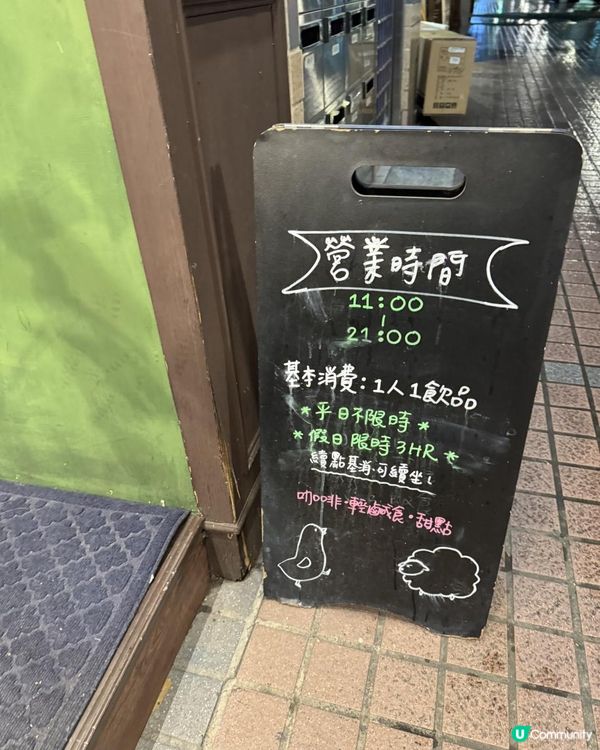 營業時間
11:00
|
21:00
基本消費:1人1飲品
*平日不限時*
*假日限時3HR*
續點基消可續坐!
咖啡·輕鹹食·甜點
U Community